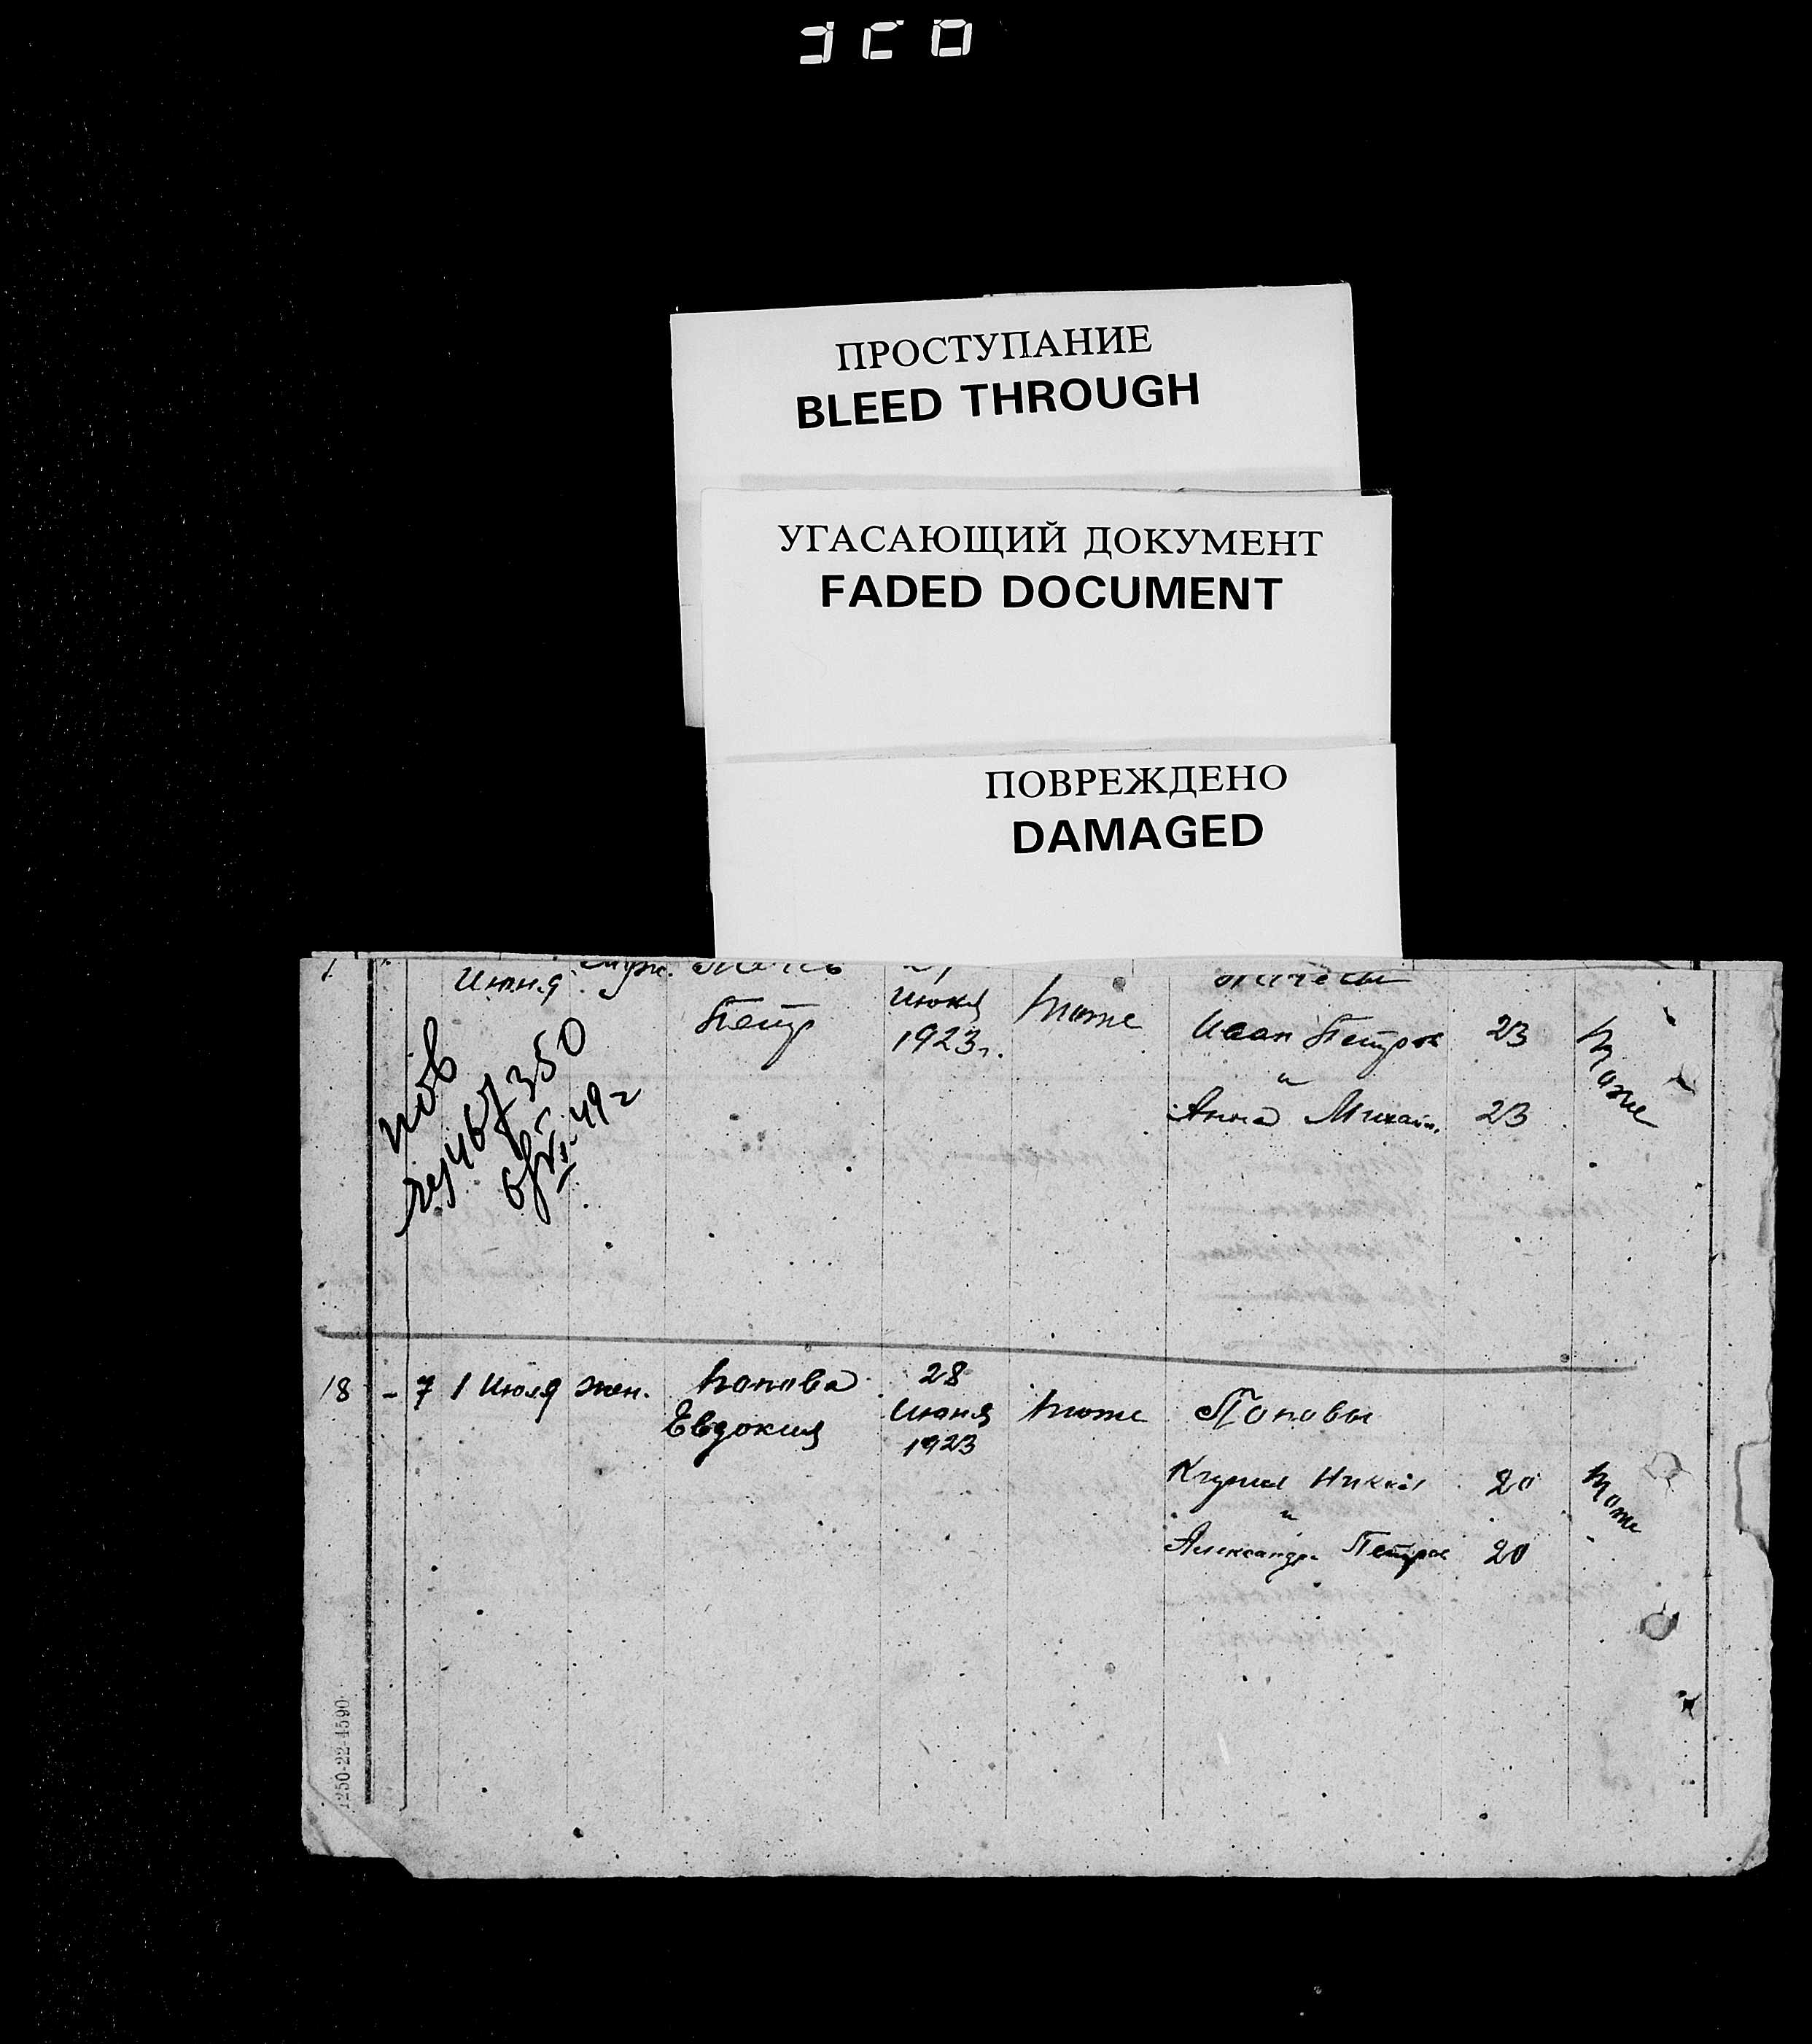 ПРОСТУПАНИЕ
BLEED THROUGH
УГАСАЮЩИЙ ДОКУМЕНТ
FADED DOCUMENT
ПОВРЕЖДЕНО
DAMAGED
Июня
Петр
Июня
1923г.
тоже
Иван Петров
23
тоже
и
Анна Михайл.
23
пов
350
49 г
18 - 7 1 Июля жен. Попова 28
Евдокия Июня тоже Поповы
1923
20 тоже
и
Александра Петров 20
1250-22-4590